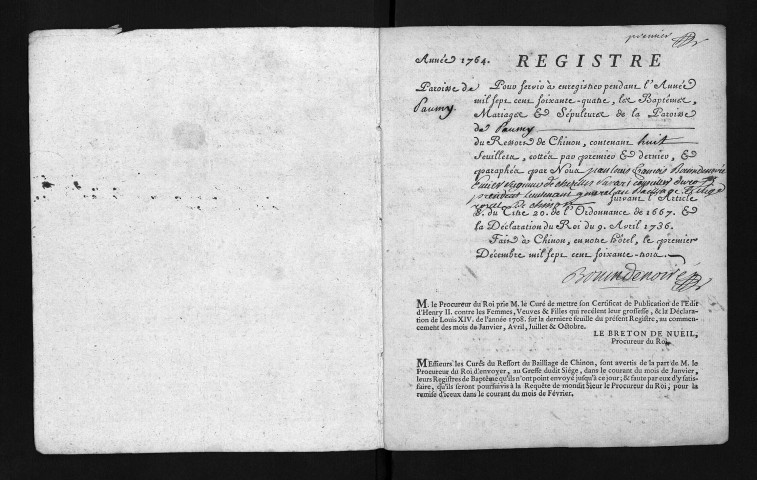 premier
Année 1764. REGISTRE
Paroisse de
Paumy.
Pour servir à enregistrer pendant l'Année
mil sept cent soixante-quatre, les Baptêmes,
Mariages & Sépultures de la Paroisse
de Paumy
du Ressort de Chinon, contenant huit
feuillets, cottés par premier & dernier, &
paraphés par Nous Jean Louis François
conseiller du roy
president lieutenant general au Bailliage & siege
royal de chinon suivant l'Article
8. du Titre 20. de l'Ordonnance de 1667. &
la Déclaration du Roi du 9. Avril 1736.
Fait à Chinon, en notre hôtel, le premier
Décembre mil sept cent soixante-trois.
M. le Procureur du Roi prie M. le Curé de mettre son Certificat de Publication de l'Edit
d'Henry II. contre les Femmes, Veuves & Filles qui recélent leur grossesse, & la Déclara-
tion de Louis XIV. de l'année 1708. sur la derniere feuille du présent Registre, au commen-
cement des mois de Janvier, Avril, Juillet & Octobre.
LE BRETON DE NUEIL,
Procureur du Roi.
MEssieurs les Curés du Ressort du Bailliage de Chinon, sont avertis de la part de M. le
Procureur du Roi d'envoyer, au Greffe dudit Siége, dans le courant du mois de Janvier,
leurs Registres de Baptême qu'ils n'ont point envoyé jusqu'à ce jour; & faute par eux d'y satis-
faire, qu'ils seront poursuivis à la Requête de mondit Sieur le Procureur du Roi, pour la
remise d'iceux dans le courant du mois de Février.